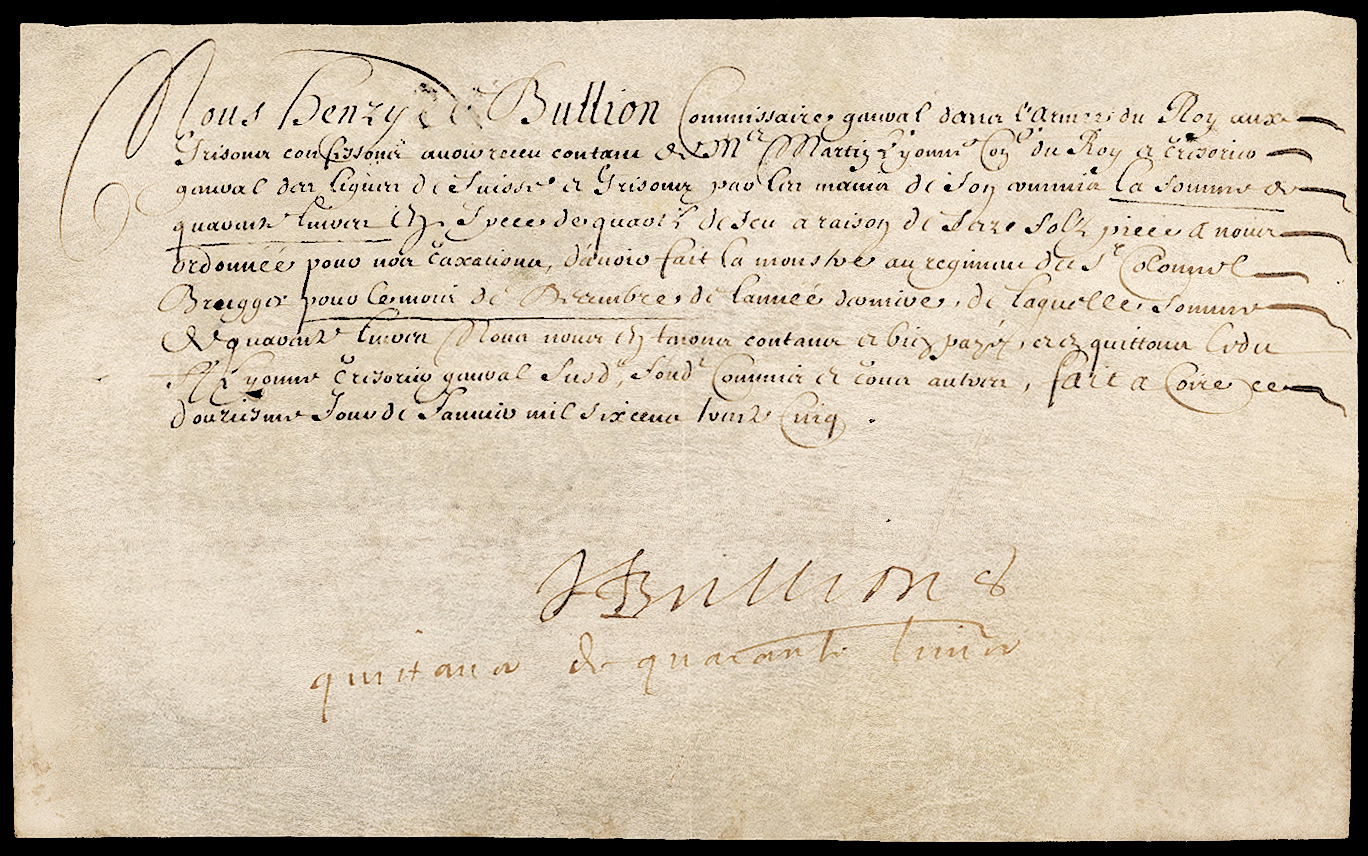 Nous Henzy de Bullion Commissaire gnãal dans l'Armee du Roy aux
Grisons confessons avoir receu contant de Mᵉʳ Martin Lyonne Conᵉʳ du Roy et Tresorier
gnãal des ligues de Suisse et Grisons par les mains de son commis la somme de
quarante livres En Espece de quartz d'escu a raison de seize solz piece a nous
ordonnée pour noz taxations, d'avoir fait la monstre au regiment du Sʳ Colonnel
Brugger pour le mois de Decembre de l'année derniere, de laquelle somme
de quarante livres Nous nous En tenons contans et bien payez, et en quittons ledit
Sʳ Lyonne Tresorier gnãal susdᵗ, sondᵗ Commis et tous autres, fait a Coire ce
douziesme Jour de Janvier mil six cens trente Cinq.
HBullion
quittance de quarante livres